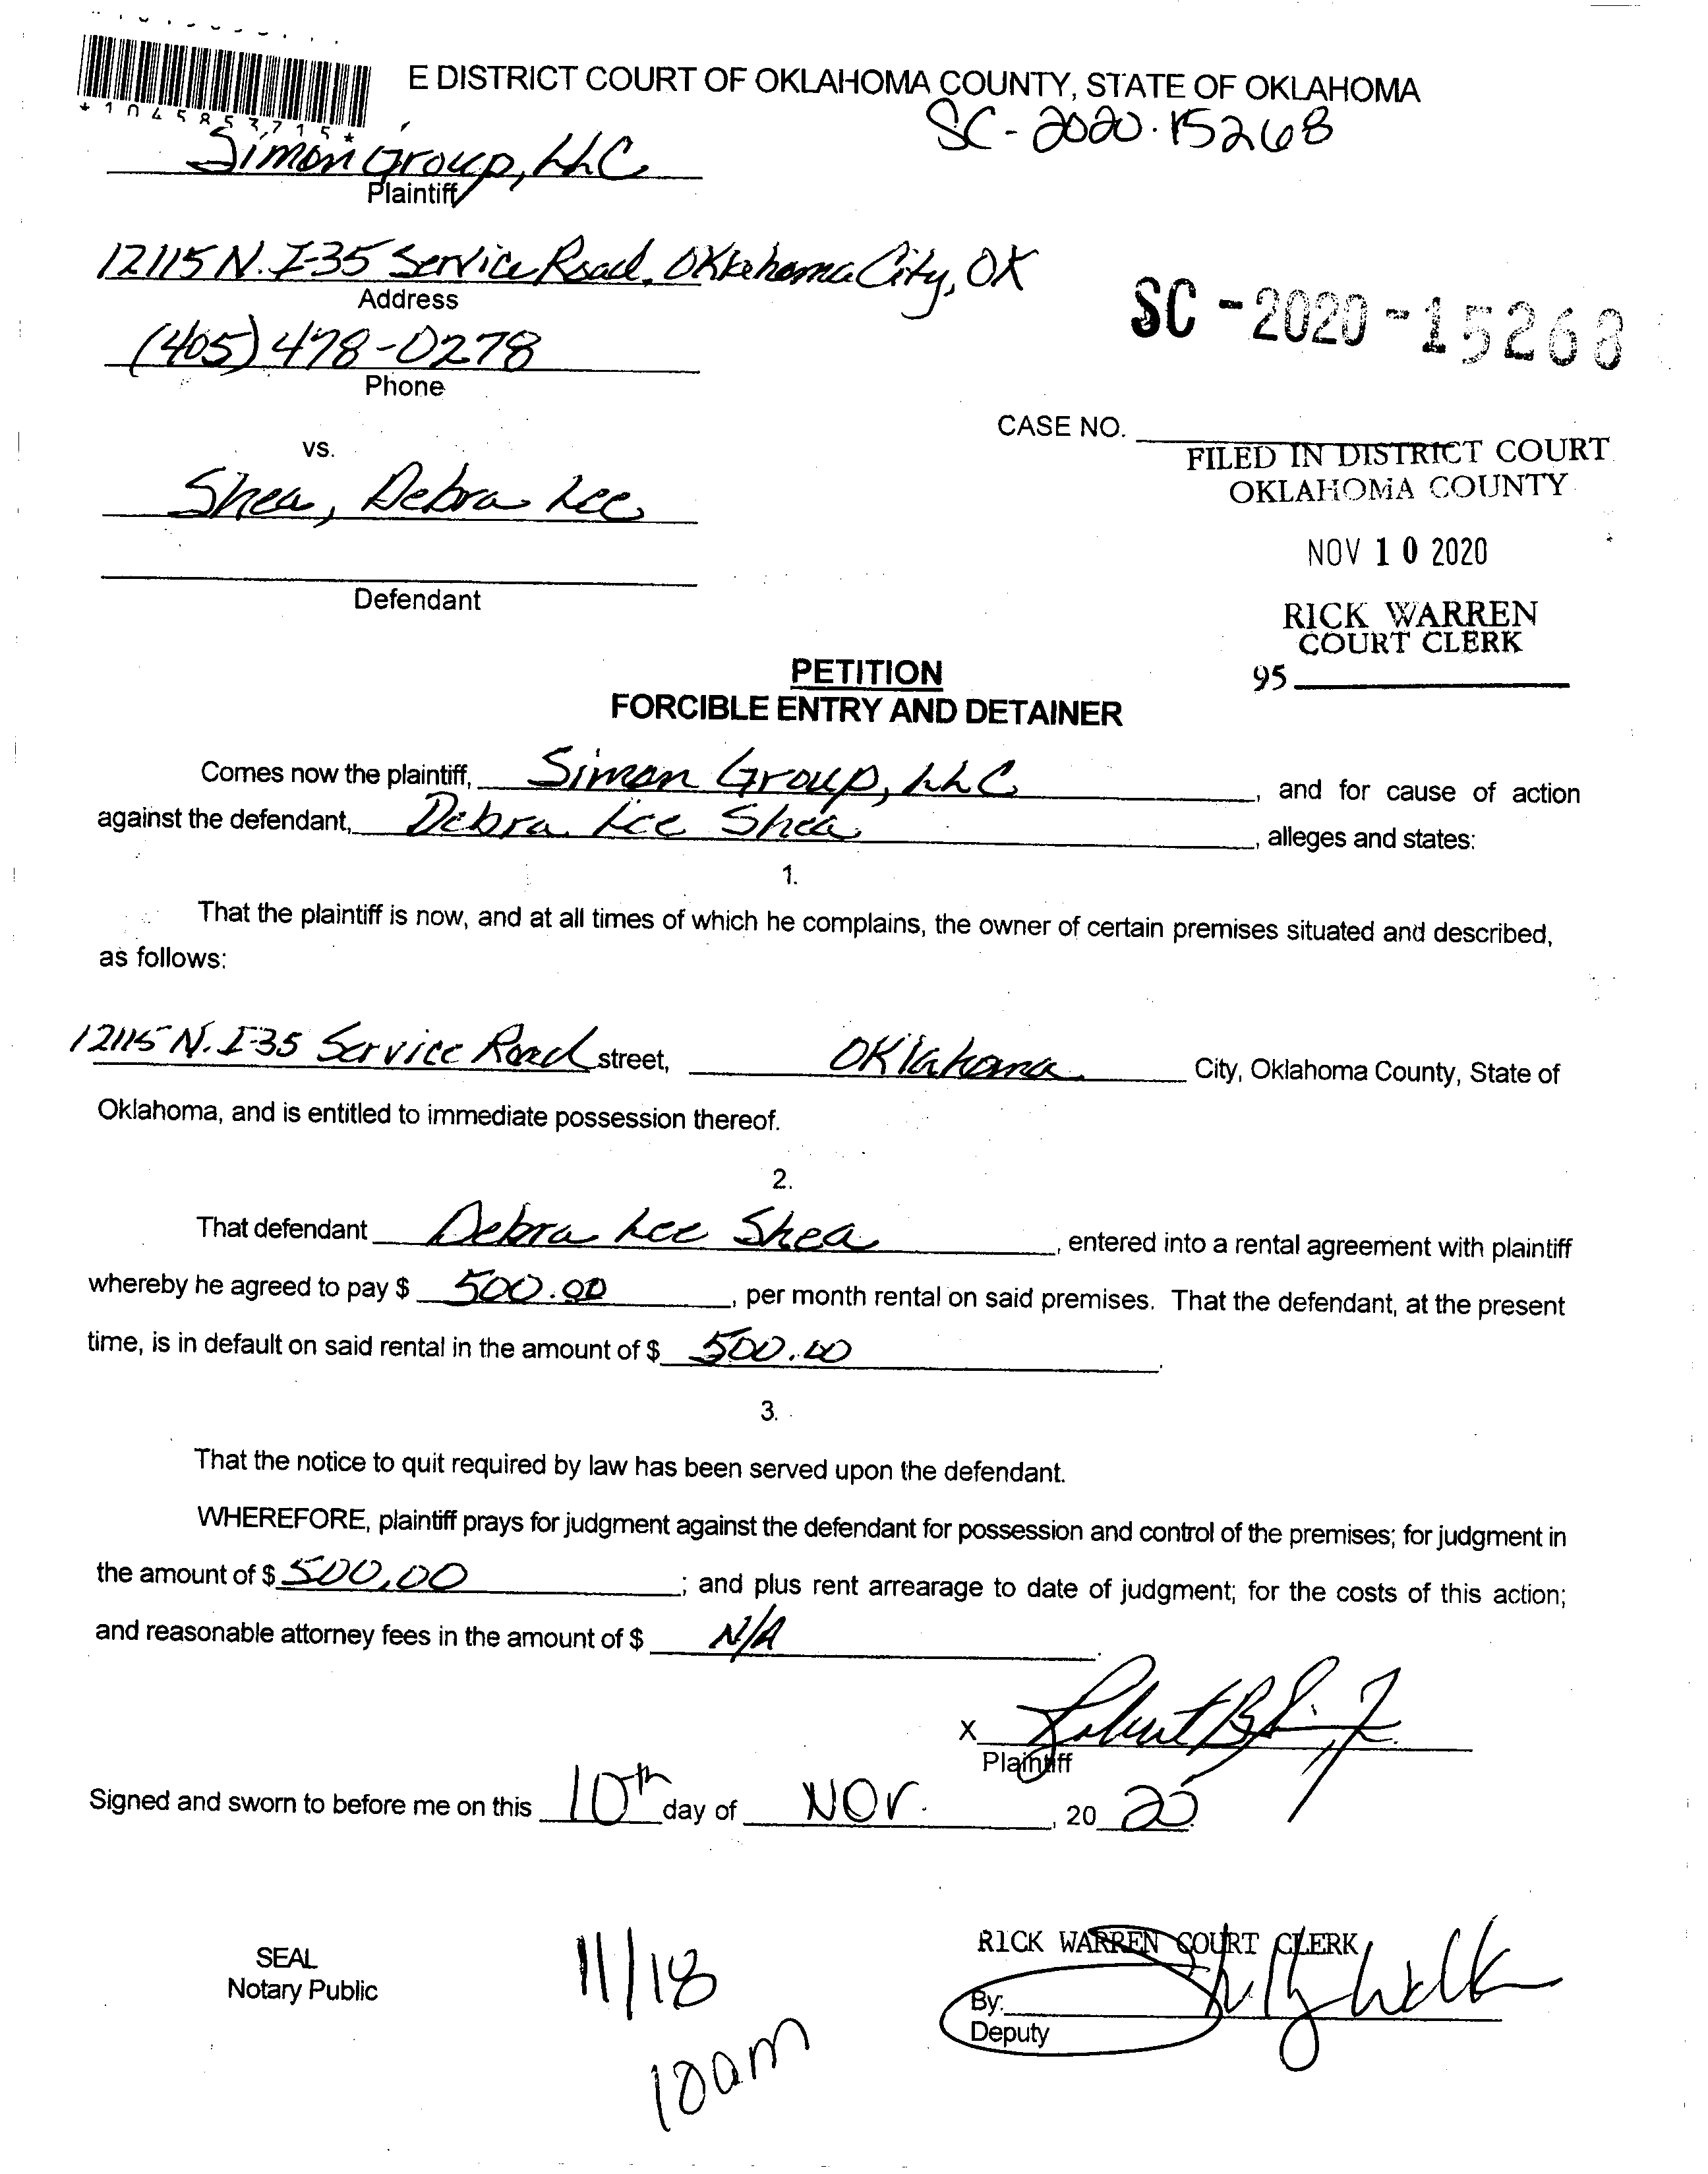 *1045853715*
E DISTRICT COURT OF OKLAHOMA COUNTY, STATE OF OKLAHOMA
SC-2020-15268
Simon Group, LLC
Plaintiff
12115 N. I-35 Service Road, Oklahoma City, OK
Address
SC-2020-15268
(405) 478-0278
Phone
CASE NO.
vs.
FILED IN DISTRICT COURT
OKLAHOMA COUNTY
Shea, Debra Lee
NOV 10 2020
Defendant
RICK WARREN
COURT CLERK
95
PETITION
FORCIBLE ENTRY AND DETAINER
Comes now the plaintiff, Simon Group, LLC, and for cause of action
against the defendant, Debra Lee Shea, alleges and states:
1.
That the plaintiff is now, and at all times of which he complains, the owner of certain premises situated and described,
as follows:
12115 N. I-35 Service Road street, Oklahoma City, Oklahoma County, State of
Oklahoma, and is entitled to immediate possession thereof.
2.
That defendant Debra Lee Shea, entered into a rental agreement with plaintiff
whereby he agreed to pay $ 500.00, per month rental on said premises. That the defendant, at the present
time, is in default on said rental in the amount of $ 500.00.
3.
That the notice to quit required by law has been served upon the defendant.
WHEREFORE, plaintiff prays for judgment against the defendant for possession and control of the premises; for judgment in
the amount of $ 500.00; and plus rent arrearage to date of judgment; for the costs of this action;
and reasonable attorney fees in the amount of $ N/A.
X Robert B
Plaintiff
Signed and sworn to before me on this 10th day of Nov., 20 20.
RICK WARREN COURT CLERK
SEAL
Notary Public
11/18
By:
Deputy
10am